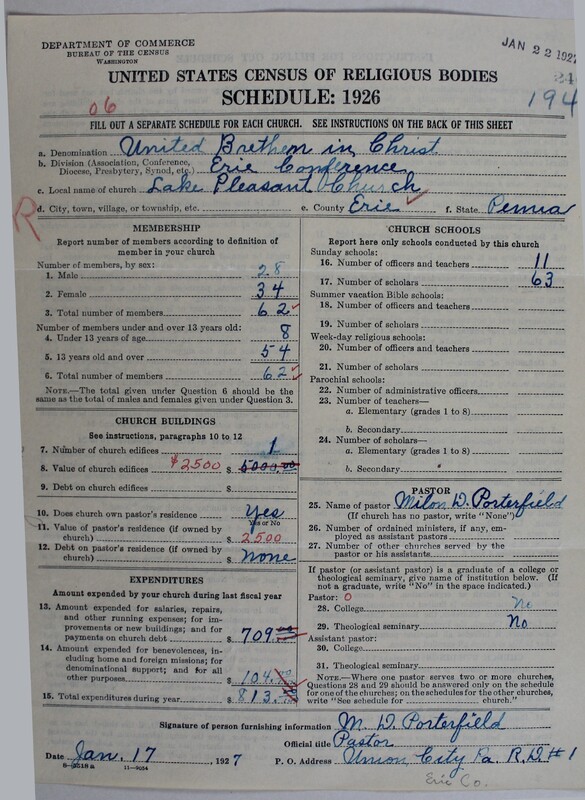 DEPARTMENT OF COMMERCE
BUREAU OF THE CENSUS
WASHINGTON
JAN 22 1927
UNITED STATES CENSUS OF RELIGIOUS BODIES
SCHEDULE: 1926
06
194
FILL OUT A SEPARATE SCHEDULE FOR EACH CHURCH. SEE INSTRUCTIONS ON THE BACK OF THIS SHEET
a. Denomination United Brethen in Christ
b. Division (Association, Conference, Diocese, Presbytery, Synod, etc.) Erie Conference
c. Local name of church Lake Pleasant Church
R
d. City, town, village, or township, etc. e. County Erie f. State Penna
MEMBERSHIP
Report number of members according to definition of
member in your church
Number of members, by sex:
1. Male 28
2. Female 34
3. Total number of members 62
Number of members under and over 13 years old:
4. Under 13 years of age 8
5. 13 years old and over 54
6. Total number of members 62
NOTE.—The total given under Question 6 should be
same as the total of males and females given under Question 3.
CHURCH BUILDINGS
See instructions, paragraphs 10 to 12
7. Number of church edifices 1
8. Value of church edifices $2500 $ 5000.00
9. Debt on church edifices $
10. Does church own pastor's residence Yes
Yes or No
11. Value of pastor's residence (if owned by
church) $ 2500
12. Debt on pastor's residence (if owned by
church) $ none
EXPENDITURES
Amount expended by your church during last fiscal year
13. Amount expended for salaries, repairs,
and other running expenses; for im-
provements or new buildings; and for
payments on church debt $ 709
14. Amount expended for benevolences,
including home and foreign missions; for
denominational support; and for all
other purposes $ 104
15. Total expenditures during year $ 813
CHURCH SCHOOLS
Report here only schools conducted by this church
Sunday schools:
16. Number of officers and teachers 11
17. Number of scholars 63
Summer vacation Bible schools:
18. Number of officers and teachers
19. Number of scholars
Week-day religious schools:
20. Number of officers and teachers
21. Number of scholars
Parochial schools:
22. Number of administrative officers
23. Number of teachers—
a. Elementary (grades 1 to 8)
b. Secondary
24. Number of scholars—
a. Elementary (grades 1 to 8)
b. Secondary
PASTOR
25. Name of pastor Milon D. Porterfield
(If church has no pastor, write "None")
26. Number of ordained ministers, if any, em-
ployed as assistant pastors
27. Number of other churches served by the
pastor or his assistants
If pastor (or assistant pastor) is a graduate of a college or
theological seminary, give name of institution below. (If
not a graduate, write "No" in the space indicated.)
Pastor: 0
28. College No
29. Theological seminary No
Assistant pastor:
30. College
31. Theological seminary
NOTE.—Where one pastor serves two or more churches,
Questions 28 and 29 should be answered only on the schedule
for one of the churches; on the schedules for the other churches,
write "See schedule for church."
Signature of person furnishing information M. D. Porterfield
Official title Pastor
Date Jan. 17 1927 P. O. Address Union City Pa. R.D #1
11—9054
Erie Co.